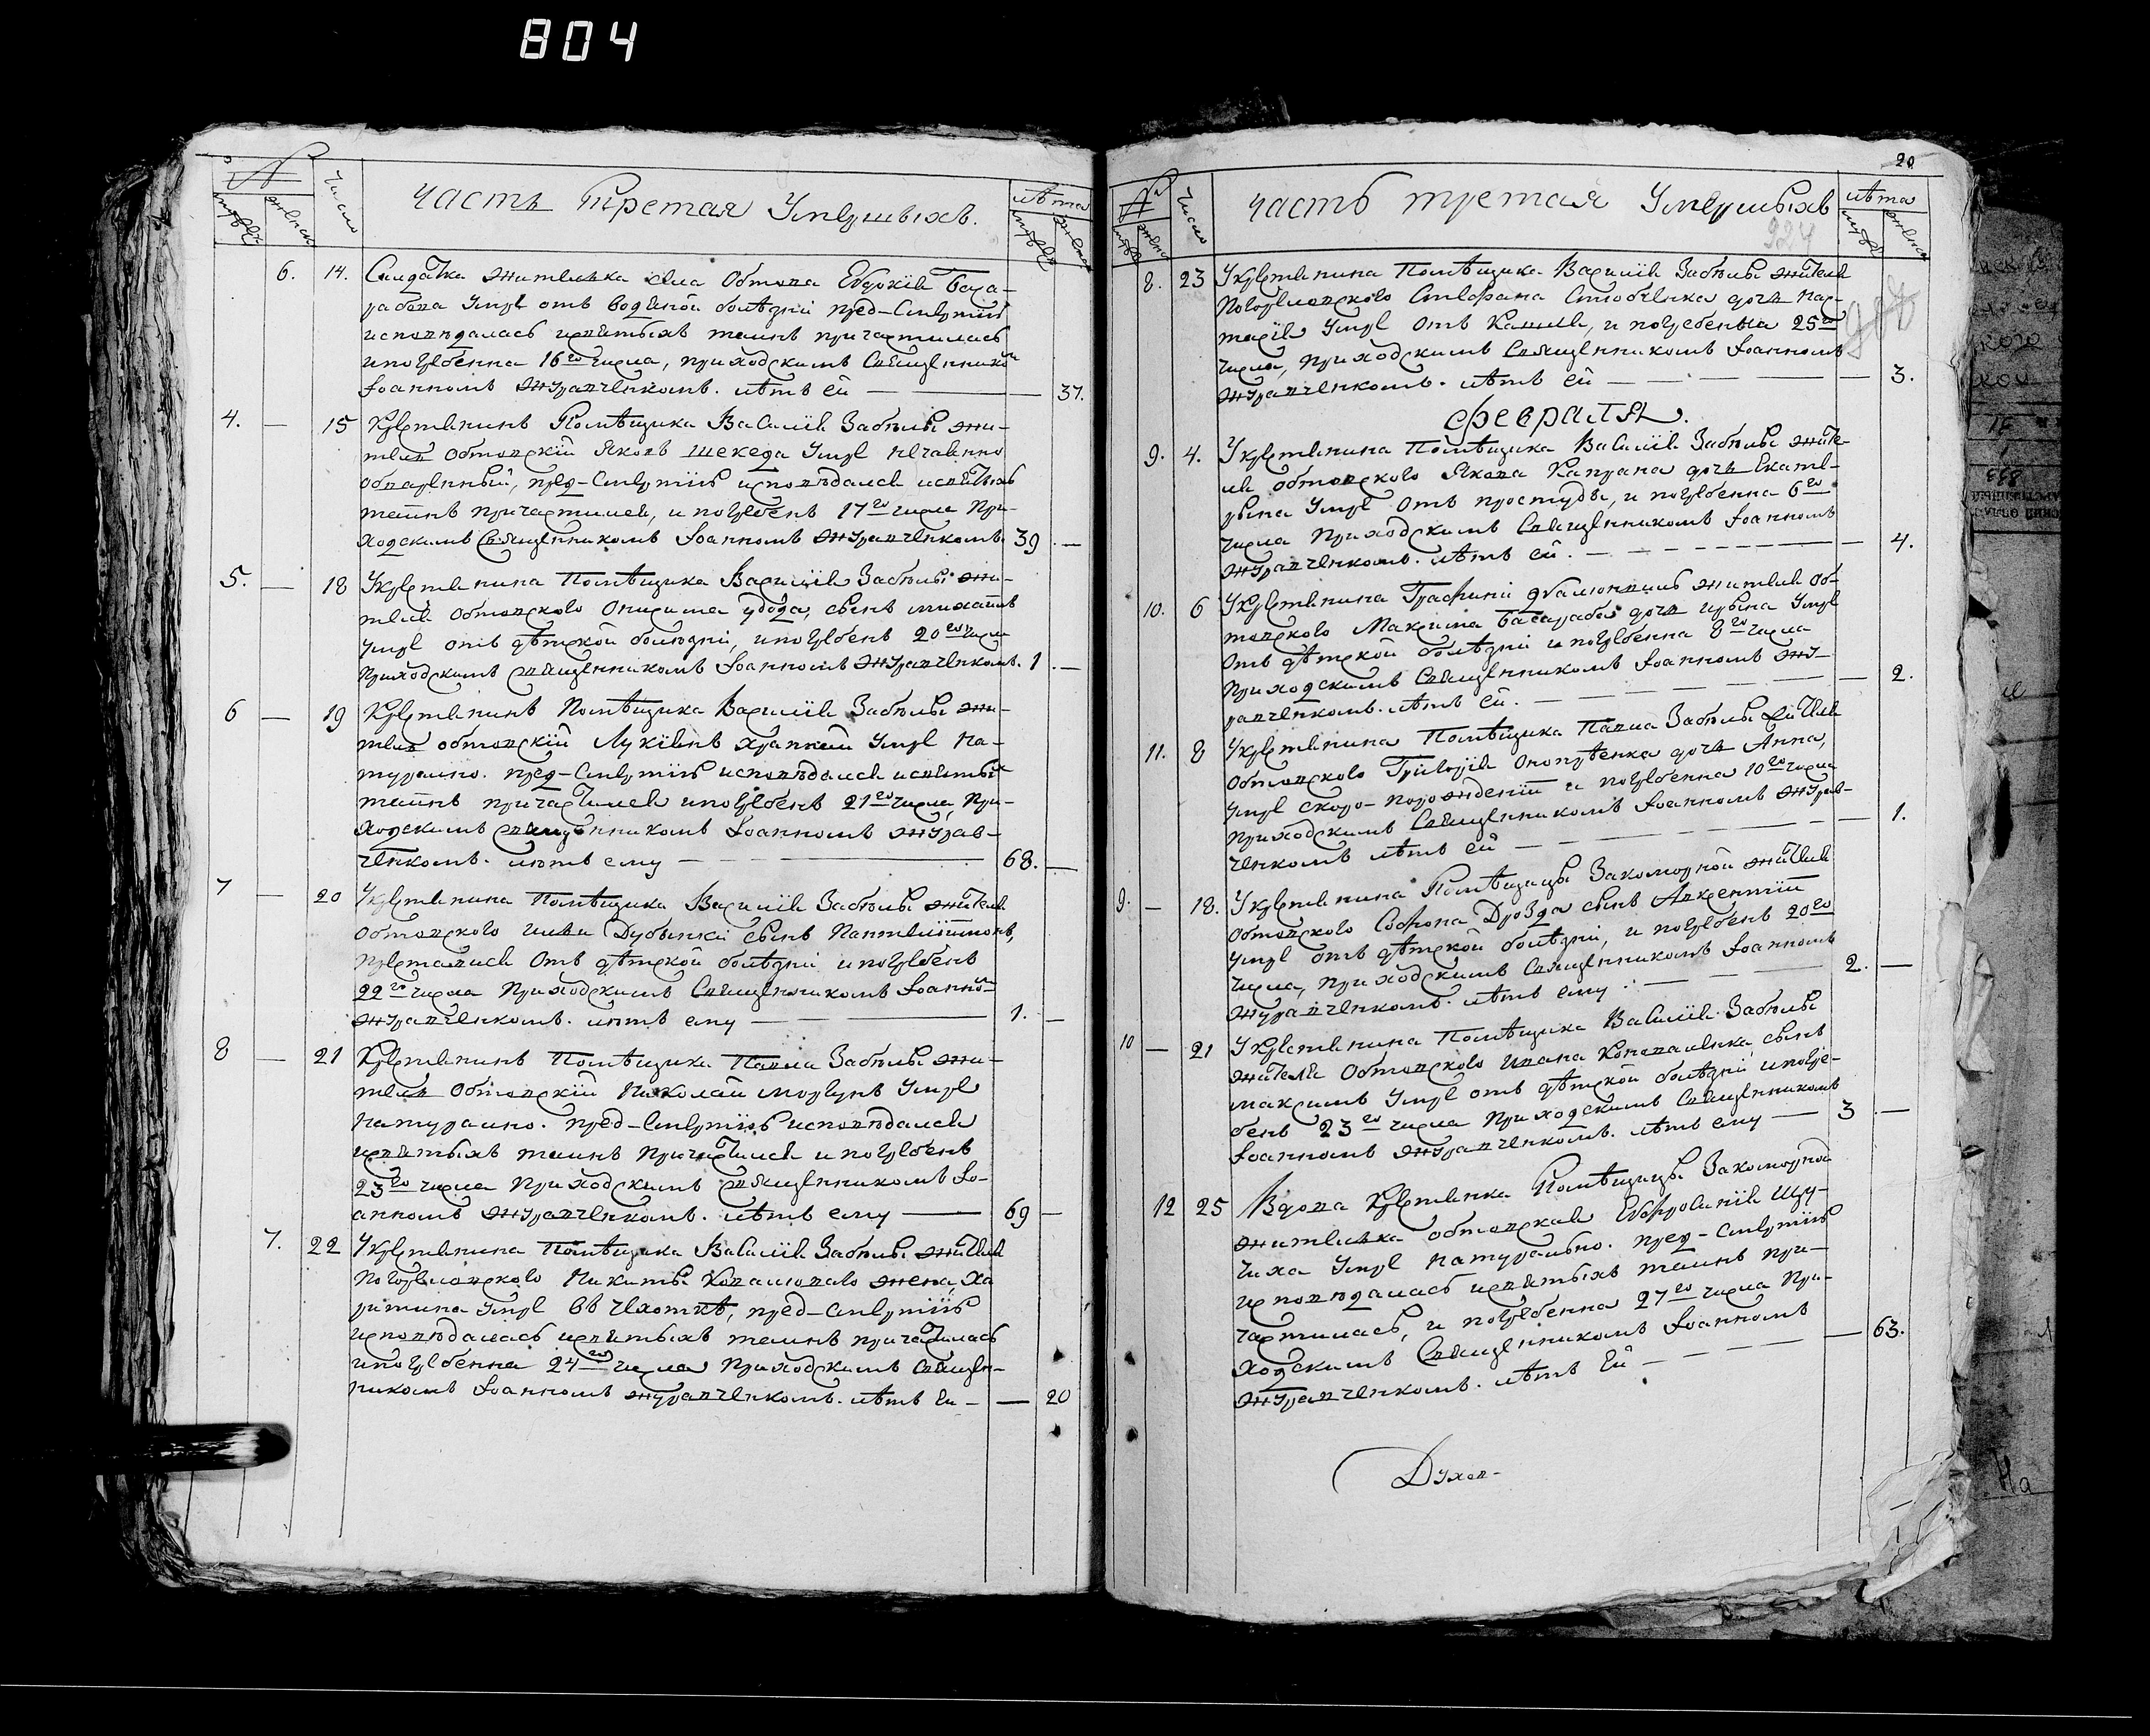 804
№
мужс: женск:
Число
часть Третая Умершыхъ.
лѣта
мужс: женск:
6. 14. Салдатка жителька села Обтова Евдокія Баса-
рабова умре отъ водяной болѣзни пред-смертію
исповѣдалась исвятыхъ таинъ причастилась
ипогребенна 16го числа, приходскимъ Священникомъ
Іоанномъ Журавченкомъ. лѣтъ ей — — 37.
4. — 15 Крестянинъ Помѣщика Василія Забѣлы жи-
тель обтовскій Яковъ Шекеда умре нечаянно
обваренный, пред-смертію исповѣдался исвятыхъ
таинъ причастился, и погребенъ 17го числа При-
ходскимъ Священникомъ Іоанномъ Журавченкомъ 39 —
5. — 18 Укрестянина Помѣщика Василія Забѣлы жи-
теля обтовского Онисима Удода, сынъ михаилъ
умре отъ дѣтской болѣзни, ипогребенъ 20го числа
Приходскимъ священникомъ Іоанномъ Журавченкомъ. 1. —
6 — 19 Крестянинъ Помѣщика Василія Забѣлы жи-
тель обтовскій Лукіянъ Храпкий умре на-
турално. пред-смертію исповѣдался исвятыхъ
таинъ причастился ипогребенъ 21го числа, При-
ходскимъ священникомъ Іоанномъ Журав-
ченкомъ. лѣтъ ему — 68. —
7 — 20 Укрестянина Помѣщика Василія Забѣлы жителя
Обтовского Дубынки сынъ Пантелиимонъ,
преставися отъ дѣтской болѣзни ипогребенъ
22го числа Приходскимъ Священникомъ Іоанномъ
Журавченкомъ. лѣтъ ему — 1. —
8 — 21 Крестянинъ Помѣщика Павла Забѣлы жи-
тель Обтовскій Николай умре
натурално. пред-смертію исповѣдался
исвятыхъ таинъ причастился ипогребенъ
23го числа Приходскимъ священникомъ Іо-
анномъ Журавченкомъ. лѣтъ ему — 69 —
7. 22 Укрестянина Помѣщика Василія Забѣлы жителя
Погореловского Никиты Ковалювало жена, Ха
ритина умре въ чхоткѣ, пред-смертію
исповѣдалась исвятыхъ таинъ причастилась
ипогребенна 24го числа Приходскимъ Священ-
никомъ Іоанномъ Журавченкомъ. лѣтъ Ей — — 20
20
№
мужс: женск:
Число
часть третая Умершыхъ
лѣта
мужс: женск:
924
8. 23 Укрестянина Помѣщика Василія Забѣлы жителя
Погореловского Стефана дочь Нас-
тасія умре отъ Кашля, и погребенна 25го
числа, приходскимъ Священникомъ Іоанномъ
Журавченкомъ. лѣтъ ей — — 3.
февраля.
9. 4. Укрестянина Помѣщика Василія Забѣлы жите-
ля обтовского Якова Капрана дочь Екате-
рына умре отъ простуды, и погребенна 6го
числа Приходскимъ Священникомъ Іоанномъ
Журавченкомъ. лѣтъ ей. — — 4.
10. 6 Укрестянина Графини жителя об-
товского Максима Басараба дочь Ирына умре
отъ дѣтской болѣзни и погребенна 8го числа
приходскимъ Священникомъ Іоанномъ Жу-
равченкомъ. лѣтъ ей. — — 2.
11. 8 Укрестянина Помѣщика Павла Забѣлы жителя
Обтовского Григорія дочь Анна,
умре скоро-порожденіи и погребенна 10го числа
приходскимъ Священникомъ Іоанномъ Журав-
ченкомъ лѣтъ ей — — 1.
9. — 18. Укрестянина Помѣщицы Закоморной жителя
обтовского Софона Дрозда сынъ Авксентій
умре отъ дѣтской болѣзни, и погребенъ 20го
числа, приходскимъ Священникомъ Іоанномъ
Журавченкомъ. лѣтъ ему. — 2. —
10 — 21 Укрестянина Помѣщика Василія Забѣлы
жителя Обтовского Ивана Коноваленка, сынъ
максимъ умре отъ дѣтской болѣзни ипогре-
бенъ 23го числа Приходскимъ Священникомъ
Іоанномъ Журавченкомъ. лѣтъ ему — 3 —
12 25 Вдова Крестянка Помѣщицы Закоморной
жителька обтовская Евфросинія Щу-
чиха умре натурально. пред-смертію
исповѣдалась исвятыхъ таинъ при-
частилась, и погребенна 27го числа При-
ходскимъ Священникомъ Іоанномъ
Журавченкомъ. лѣтъ Ей — — 63.
Духов-
На